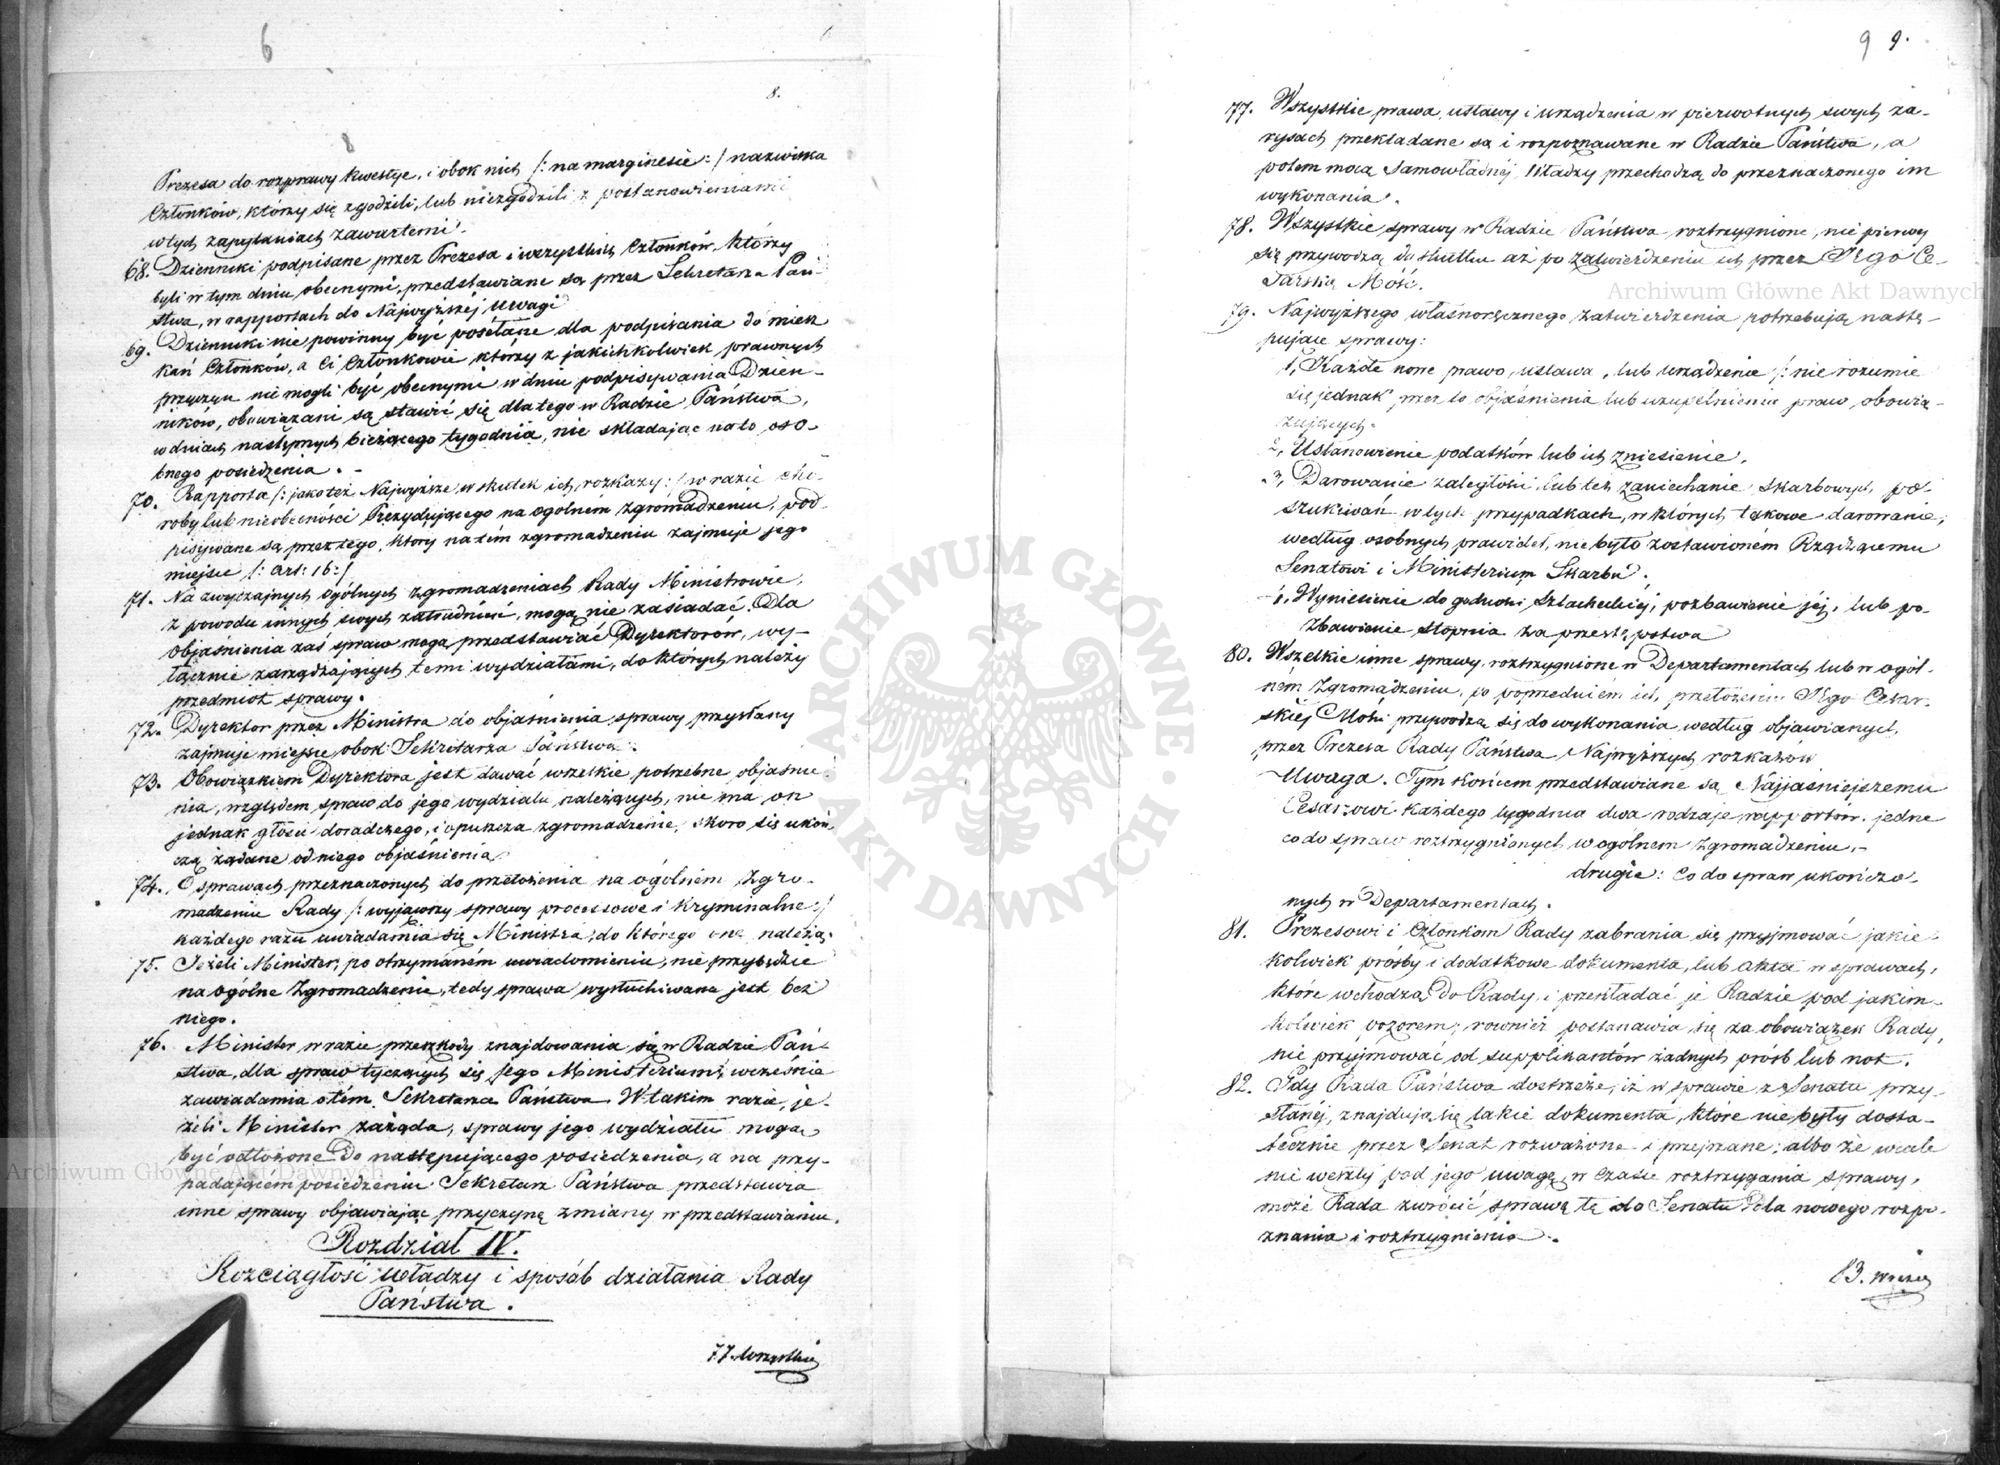 6
8.
8
Prezesa do rozprawy kwestye, i obok nich /: na marginesie :/ nazwiska
Członków, którzy się zgodzili, lub niezgodzili z postanowieniami
w tych zapytaniach zawartemi.
68. Dzienniki podpisane przez Prezesa i wszystkich Członków, którzy
byli w tym dniu obecnymi, przedstawiane są przez Sekretarza Pań-
stwa, w rapportach do Najwyższej uwagi
69. Dzienniki nie powinny być posełane dla podpisania do miesz
kań Członków, a Ci Członkowie którzy z jakichkolwiek prawnych
przyczyn nie mogli być obecnymi w dniu podpisywania Dzien-
ników, obowiązani są stawić się dla tego w Radzie Państwa,
w dniach następnych bieżącego tygodnia, nie składając na to oso-
bnego posiedzenia. -
70. Rapporta /: jako też Najwyższe w skutek ich rozkazy :/ w razie cho-
roby lub nieobecności Prezydującego na ogólnem zgromadzeniu, pod-
pisywane są przez tego, który na tém zgromadzeniu zajmuje jego
miejsce /: Art: 16 :/
71. Na zwyczajnych ogólnych zgromadzeniach Rady Ministrowie,
z powodu innych swych zatrudnień, mogą nie zasiadać. Dla
objaśnienia zaś spraw mogą przedstawiać Dyrektorów, wy-
łącznie zarządzających temi wydziałami, do których należy
przedmiot sprawy.
72. Dyrektor przez Ministra do objaśnienia sprawy przysłany
zajmuje miejsce obok Sekretarza Państwa.
73. Obowiązkiem Dyrektora jest dawać wszelkie potrzebne objaśnie-
nia, względem spraw do jego wydziału należących, nie ma on
jednak głosu doradczego, i opuszcza zgromadzenie, skoro się ukoń-
czą żądane od niego objaśnienia
74. O sprawach przeznaczonych do przełożenia na ogólném Zgro-
madzeniu Rady /: wyjąwszy sprawy processowe i kryminalne :/
każdego razu uwiadamia się Ministra, do którego one należą.
75. Jeżeli Minister, po otrzymaném uwiadomieniu, nie przybędzie
na ogólne Zgromadzenie, tedy sprawa wysłuchiwana jest bez
niego.
76. Minister w razie przeszkody znajdowania się w Radzie Pań-
stwa, dla spraw tyczących się Jego Ministerium, wcześnie
zawiadamia o tém Sekretarza Państwa. W takim razie, je-
żeli Minister zażąda, sprawy jego wydziału mogą
być odłożone do następującego posiedzenia, a na przy-
padającem posiedzeniu Sekretarz Państwa przedstawia
inne sprawy objawiając przyczynę zmiany w przedstawianiu.
Rozdział IV.
Rozciągłość władzy i sposób działania Rady
Państwa.
77. Wszystkie
9 9.
77. Wszystkie prawa, ustawy i urządzenia w pierwotnych swych za-
rysach przekładane są i rozpoznawane w Radzie Państwa, a
potem mocą Samowładnéj Władzy przechodzą do przeznaczonego im
wykonania.
78. Wszystkie sprawy w Radzie Państwa roztrzygnione, nie pierwej
się przywodzą do skutku aż po zatwierdzeniu ich przez Jego Ce-
sarską Mość.
79. Najwyższego własnoręcznego zatwierdzenia potrzebują nastę-
pujące sprawy:
1, Każde nowe prawo, ustawa, lub urządzenie /: nie rozumie
się jednak przez to objaśnienia lub uzupełnienia praw obowią-
zujących.
2, Ustanowienie podatków lub ich zniesienie.
3, Darowanie zaległości, lub też zaniechanie skarbowych po-
szukiwań w tych przypadkach, w których takowe darowanie,
według osobnych prawideł, nie było zostawioném Rządzącemu
Senatowi i Ministerium Skarbu.
4, Wyniesienie do godności Szlacheckiéj, pozbawienie jéj, lub po-
zbawienie stopnia za przestępstwa
80. Wszelkie inne sprawy, roztrzygnione w Departamentach lub w ogól-
ném Zgromadzeniu, po poprzedniém ich przełożeniu Jego Cesar-
skiéj Mości przywodzą się do wykonania według objawianych,
przez Prezesa Rady Państwa Najwyższych rozkazów
Uwaga. Tym końcem przedstawiane są Najjaśniejszemu
Cesarzowi każdego tygodnia dwa rodzaje rapportów. jedne
co do spraw roztrzygnionych w ogólnem zgromadzeniu, -
drugie: co do spraw ukończo-
nych w Departamentach.
81. Prezesowi i Członkom Rady zabrania się przyjmować jakie-
kolwiek prośby i dodatkowe dokumenta, lub akta w sprawach,
które wchodzą do Rady, i przekładać je Radzie pod jakim-
kolwiek pozorem; rownież postanawia się za obowiązek Rady,
nie przyjmować od supplikantów żadnych prósb lub not.
82. Gdy Rada Państwa dostrzeże, iż w sprawie z Senatu przy-
słanéj, znajdują się takie dokumenta, które nie były dosta-
tecznie przez Senat rozważone i przejrzane; albo że wcale
nie weszły pod jego uwagę w czasie roztrzygania sprawy,
może Rada zwrócić sprawę tę do Senatu dla nowego rozpo-
znania i roztrzygnienia.
83. W razie
Archiwum Główne Akt Dawnych
Archiwum Główne Akt Dawnych
ARCHIWUM GŁÓWNE · AKT DAWNYCH ·